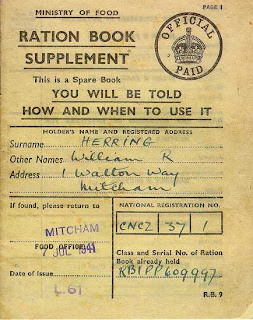 MINISTRY OF FOOD
PAGE 1
RATION BOOK
SUPPLEMENT
OFFICIAL
PAID
This is a Spare Book
YOU WILL BE TOLD
HOW AND WHEN TO USE IT
HOLDER'S NAME AND REGISTERED ADDRESS
Surname HERRING
Other Names William R
Address 1 Walton Way
Mitcham
If found, please return to
NATIONAL REGISTRATION NO.
CNCZ 37 1
MITCHAM
7 JUL 1941
FOOD OFFICE
Class and Serial No. of Ration
Book already held
RB1PP609997
Date of Issue
L.61
R.B. 9